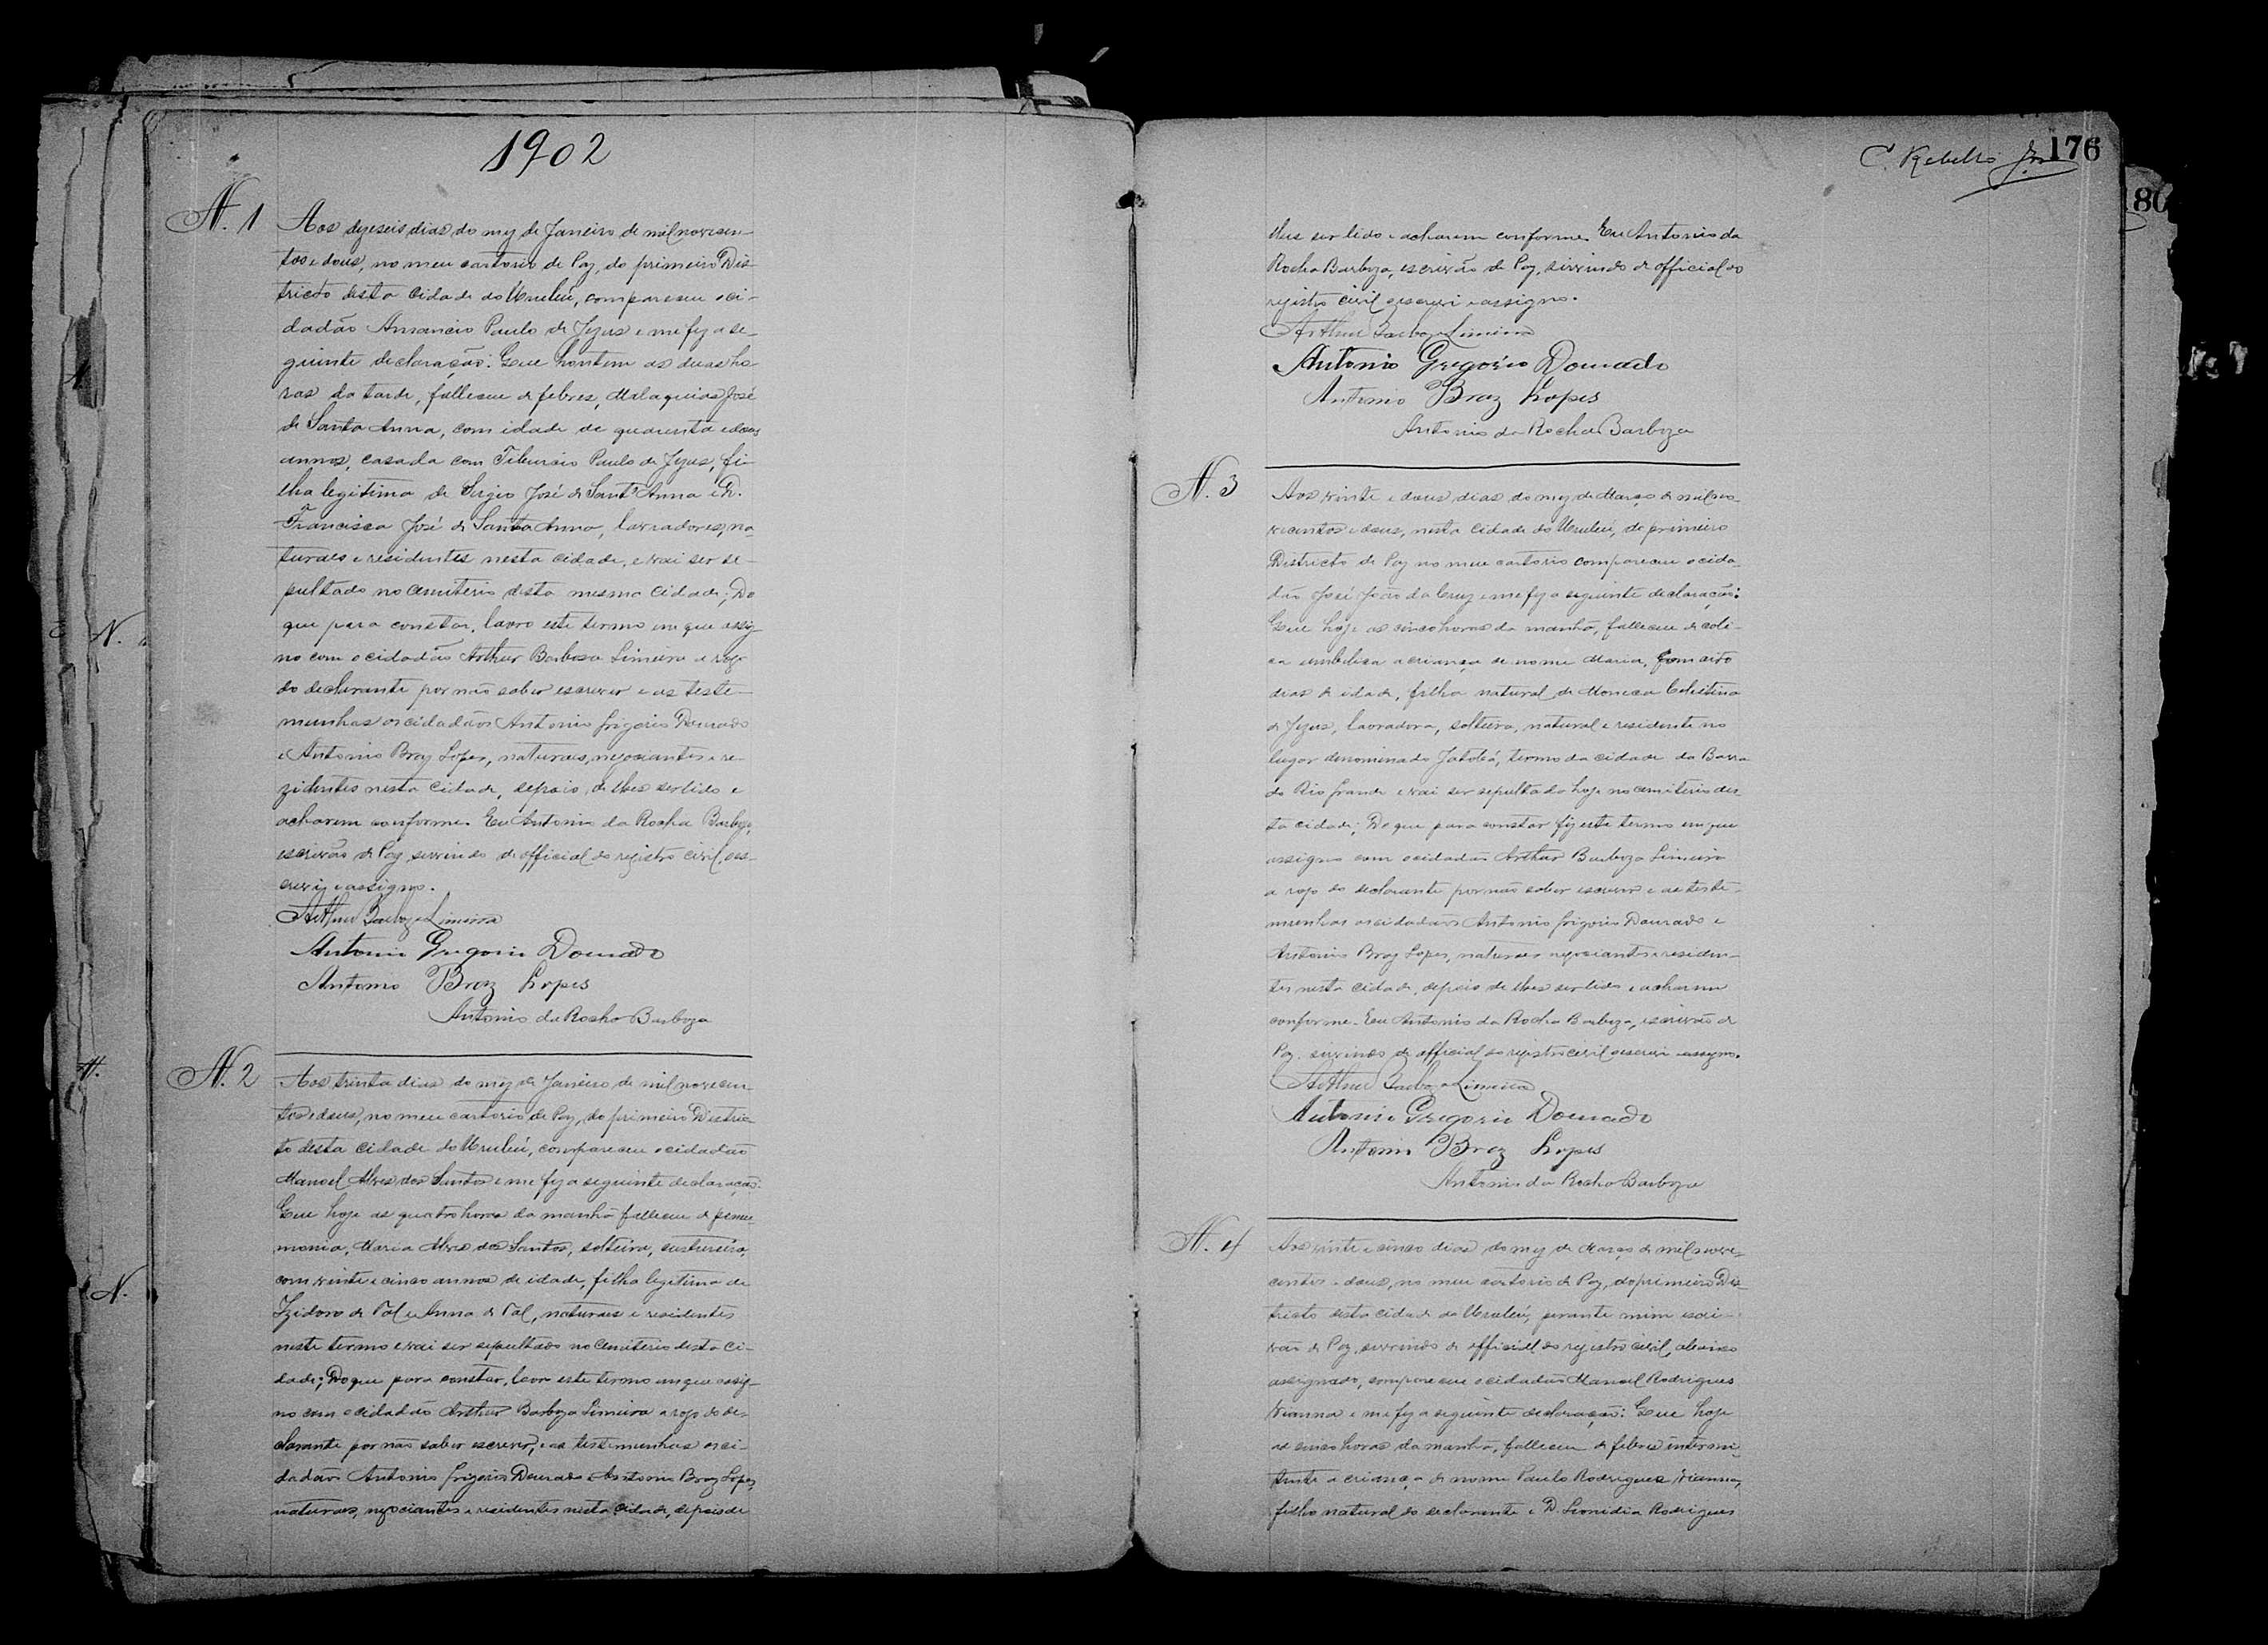 1902
N. 1
Aos dezeseis dias do mez de Janeiro de mil novecen-
tos e dous, no meu cartorio de Paz, do primeiro Dis-
tricto desta Cidade do Urubú, compareceu o ci-
dadão Amancio Paulo de Jezus e me fez a se-
guinte declaração: Que hontem as duas ho-
ras da tarde, falleceu de febres, Malaquias José
de Santa Anna, com idade de quarenta e dous
annos, casada com Tiburcio Paulo de Jezus, fi-
lha legitima de Sergio José de Sant'Anna e D.
Francisca José de Santa Anna, lavradores, na-
turaes e residentes nesta cidade, e vai ser se-
pultado no Cemiterio desta mesma Cidade; Do
que para constar, lavro este termo em que assig-
no com o cidadão Arthur Barbosa Limeira a rogo
do declarante por não saber escrever e as teste-
munhas os cidadãos Antonio Grigorio Dourado
e Antonio Braz Lopes, naturaes, negociantes e re-
zidentes nesta Cidade, depois de lhes ser lido e
acharem conforme. Eu Antonio da Rocha Barboza,
escrivão de Paz, servindo de official do registro civil, es-
crevi e assigno.
Arthur Barboza Limeira
Antonio Gregorio Dourado
Antonio Braz Lopes
Antonio da Rocha Barboza
N. 2
Aos trinta dias do mez de Janeiro de mil novecen
tos e dous, no meu cartorio de Paz, do primeiro Distric-
to desta Cidade do Urubú, compareceu o cidadão
Manoel Alves dos Santos e me fez a seguinte declaração:
Que hoje as quatro horas da manhã falleceu de pneu
monia, Maria Alves dos Santos, solteira, custureira,
com vinte e cinco annos de idade, filha legitima de
Izidoro de Tal e Anna de Tal, naturaes e residentes
neste termo e vai ser sepultado no Cemiterio desta Ci-
dade; Do que para constar, lavro este termo em que assig-
no com o cidadão Arthur Barboza Limeira a rogo do de-
clarante por não saber escrever, e as testemunhas os ci-
dadãos Antonio Grigorio Dourado e Antonio Braz Lopes,
naturaes, negociantes e residentes nesta Cidade, depois de
C. Rebello Jr. 176
lhes ser lido e acharem conforme. Eu Antonio da
Rocha Barboza, escrivão de Paz, servindo de official do
registro civil escrevi e assigno.
Arthur Barboza Limeira
Antonio Gregorio Dourado
Antonio Braz Lopes
Antonio da Rocha Barboza
N. 3
Aos vinte e dous dias do mez de Março de mil no-
vecentos e dous, nesta Cidade do Urubú, do primeiro
Districto de Paz no meu cartorio compareceu o cida-
dão José João da Cruz e me fez a seguinte declaração:
Que hoje as cinco horas da manhã, falleceu de coli-
ca umbelica a criança de nome Maria, com oito
dias de idade, filha natural de Monica Celestina
de Jezus, lavradora, solteira, natural e residente no
lugar denominado Jatobá, termo da cidade da Barra
do Rio Grande e vai ser sepultado hoje no cemiterio des-
ta cidade; Do que para constar fiz este termo em que
assigno com o cidadão Arthur Barboza Limeira
a rogo do declarante por não saber escrever e as teste-
munhas os cidadãos Antonio Grigorio Dourado e
Antonio Braz Lopes, naturaes negociantes e residen-
tes nesta Cidade, depois de lhes ser lido e acharem
conforme. Eu Antonio da Rocha Barboza, escrivão de
Paz, servindo de official do registro civil escrevi assigno.
Arthur Barboza Limeira
Antonio Gregorio Dourado
Antonio Braz Lopes
Antonio da Rocha Barboza
N. 4
Aos vinte e cinco dias do mez de Março de mil nove-
centos e dous, no meu cartorio de Paz, do primeiro Dis-
tricto desta Cidade do Urubú, perante mim escri-
vão de Paz, servindo de official do registro civil, abaixo
assignado, compareceu o cidadão Manoel Rodrigues
Vianna e me fez a seguinte declaração: Que hoje
as cinco horas da manhã, falleceu de febres intermi-
tente a criança de nome Paulo Rodrigues Vianna,
filho natural do declarante e D. Leonidia Rodrigues